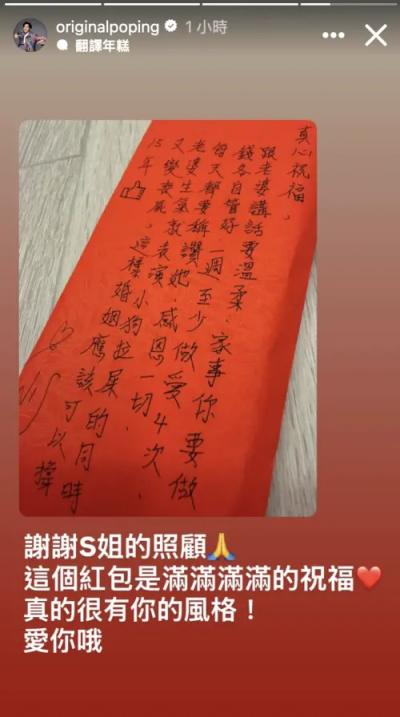 originalpoping 1 小時
翻譯年糕
真心祝福,
跟老婆講話要溫柔.家事你要做
錢各自管好.一週至少做愛4次.
每天都要稱讚她.感恩一切.
老婆生氣就表演小狗拉屎的同時
又變喪屍.這樣婚姻應該可以撐
15年
謝謝S姐的照顧🙏
這個紅包是滿滿滿滿的祝福❤️
真的很有你的風格！
愛你哦